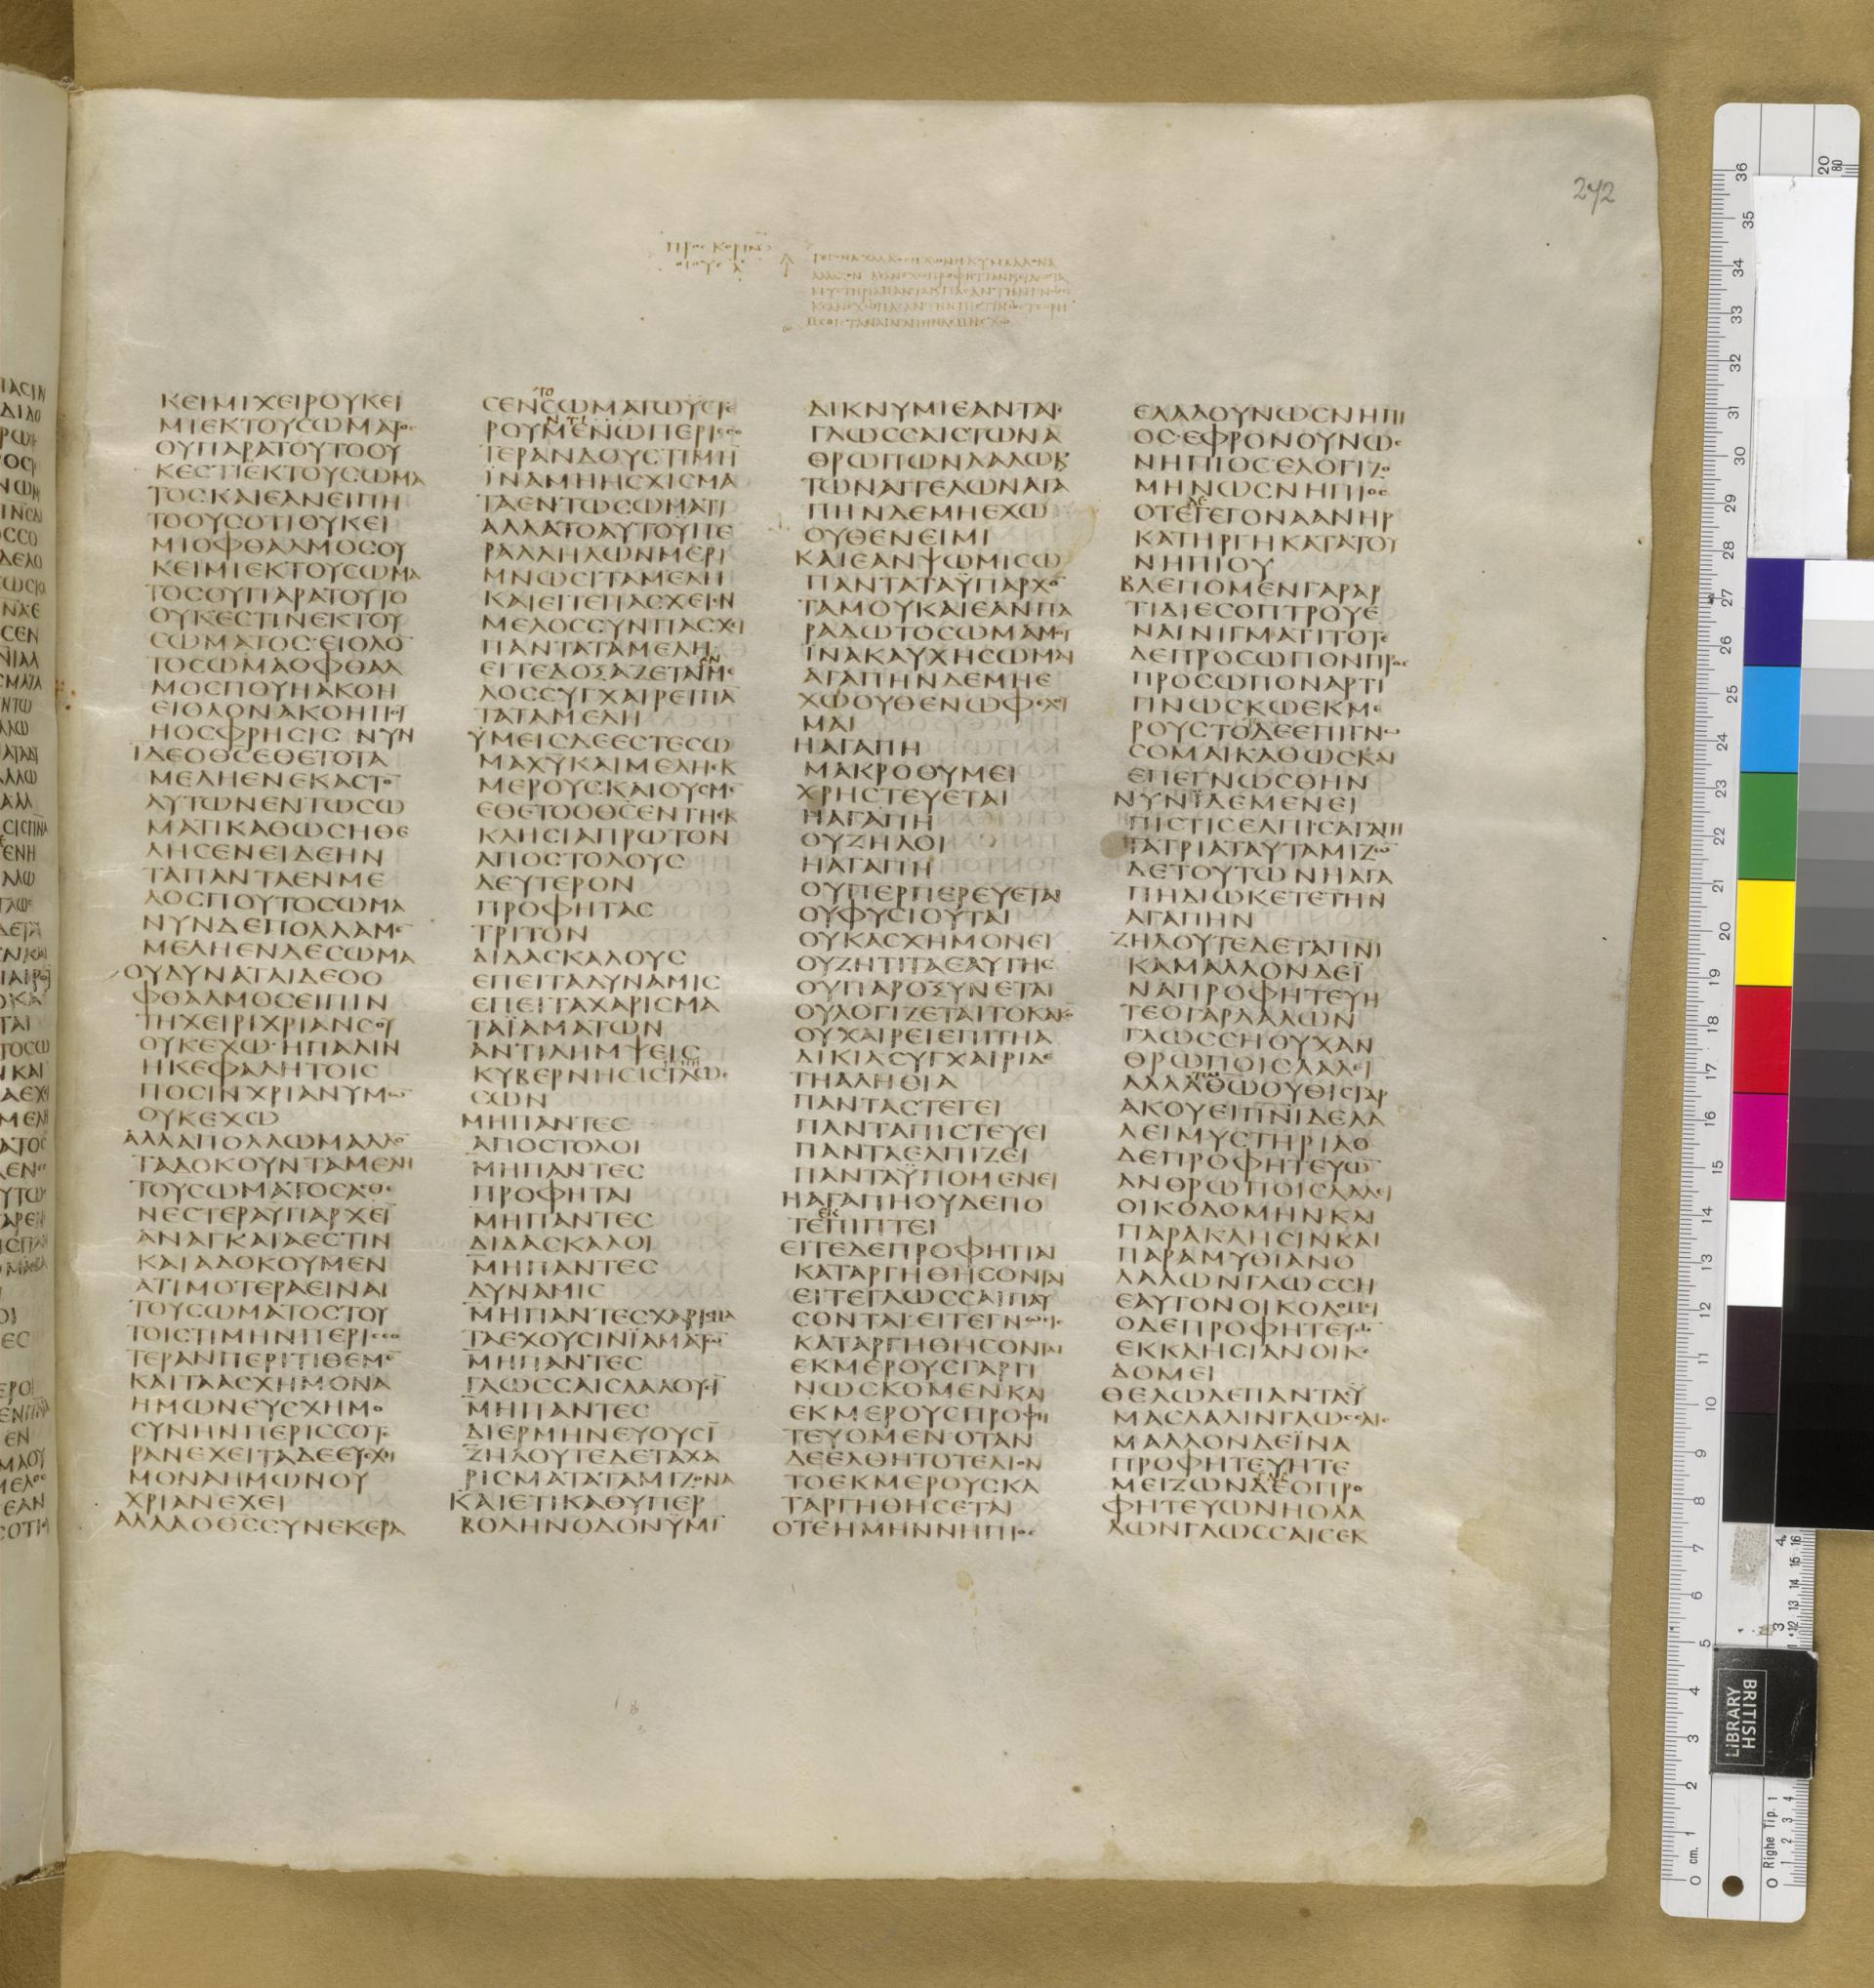 272
ΠΡΟϹ ΚΟΡΙΝ
ΚΕΙΜΙΧΕΙΡΟΥΚΕΙ
ΜΙΕΚΤΟΥϹΩΜΑΤΟϹ
ΟΥΠΑΡΑΤΟΥΤΟΟΥ
ΚΕϹΤΙΕΚΤΟΥϹΩΜΑ
ΤΟϹΚΑΙΕΑΝΕΙΠΗ
ΤΟΟΥϹΟΤΙΟΥΚΕΙ
ΜΙΟΦΘΑΛΜΟϹΟΥ
ΚΕΙΜΙΕΚΤΟΥϹΩΜΑ
ΤΟϹΟΥΠΑΡΑΤΟΥΤΟ
ΟΥΚΕϹΤΙΝΕΚΤΟΥ
ϹΩΜΑΤΟϹ·ΕΙΟΛΟ̅
ΤΟϹΩΜΑΟΦΘΑΛ
ΜΟϹΠΟΥΗΑΚΟΗ
ΕΙΟΛΟΝΑΚΟΗΠΟΥ
ΗΟϹΦΡΗϹΙϹ ΝΥΝ
ΪΔΕΟΘ̅Ϲ̅ΕΘΕΤΟΤΑ
ΜΕΛΗΕΝΕΚΑϹΤΟ̅
ΑΥΤΩΝΕΝΤΩϹΩ
ΜΑΤΙΚΑΘΩϹΗΘΕ
ΛΗϹΕΝΕΙΔΕΗΝ
ΤΑΠΑΝΤΑΕΝΜΕ
ΛΟϹΠΟΥΤΟϹΩΜΑ
ΝΥΝΔΕΠΟΛΛΑΜΕ̅
ΜΕΛΗΕΝΔΕϹΩΜΑ
ΟΥΔΥΝΑΤΑΙΔΕΟΟ
ΦΘΑΛΜΟϹΕΙΠΙΝ
ΤΗΧΕΙΡΙΧΡΙΑΝϹΟΥ
ΟΥΚΕΧΩ·ΗΠΑΛΙΝ
ΗΚΕΦΑΛΗΤΟΙϹ
ΠΟϹΙΝΧΡΙΑΝΥΜΩ̅
ΟΥΚΕΧΩ
ΑΛΛΑΠΟΛΛΩΜΑΛΛΟ̅
ΤΑΔΟΚΟΥΝΤΑΜΕΛΗ
ΤΟΥϹΩΜΑΤΟϹΑϹΘΕ
ΝΕϹΤΕΡΑΥΠΑΡΧΕΙ̅
ΑΝΑΓΚΑΙΑΕϹΤΙΝ
ΚΑΙΑΔΟΚΟΥΜΕΝ
ΑΤΙΜΟΤΕΡΑΕΙΝΑΙ
ΤΟΥϹΩΜΑΤΟϹΤΟΥ
ΤΟΙϹΤΙΜΗΝΠΕΡΙϹϹΟ
ΤΕΡΑΝΠΕΡΙΤΙΘΕΜΕ̅
ΚΑΙΤΑΑϹΧΗΜΟΝΑ
ΗΜΩΝΕΥϹΧΗΜΟ
ϹΥΝΗΝΠΕΡΙϹϹΟΤΕ
ΡΑΝΕΧΕΙΤΑΔΕΕΥϹΧΗ
ΜΟΝΑΗΜΩΝΟΥ
ΧΡΙΑΝΕΧΕΙ
ΑΛΛΑΟΘ̅Ϲ̅ϹΥΝΕΚΕΡΑ
ΤΟ
ϹΕΝϹΩΜΑΤΩΥϹΤΕ
ΡΟΥΜΕΝΩΠΕΡΙϹϹΟ
ΤΕΡΑΝΔΟΥϹΤΙΜΗ̅
ΪΝΑΜΗΗϹΧΙϹΜΑ
ΤΑΕΝΤΩϹΩΜΑΤΙ
ΑΛΛΑΤΟΑΥΤΟΫΠΕ
ΡΑΛΛΗΛΩΝΜΕΡΙ
ΜΝΩϹΙΤΑΜΕΛΗ
ΚΑΙΕΙΤΕΠΑϹΧΕΙΕΝ
ΜΕΛΟϹϹΥΝΠΑϹΧΕΙ
ΠΑΝΤΑΤΑΜΕΛΗ
ΕΝ
ΕΙΤΕΔΟΞΑΖΕΤΑΙΜΕ
ΛΟϹϹΥΓΧΑΙΡΕΙΠΑ
ΤΑΤΑΜΕΛΗ
ΫΜΕΙϹΔΕΕϹΤΕϹΩ
ΜΑΧ̅Υ̅ΚΑΙΜΕΛΗΕΚ
ΜΕΡΟΥϹΚΑΙΟΥϹΜΕ̅
ΕΘΕΤΟΟΘ̅Ϲ̅ΕΝΤΗΕΚ
ΚΛΗϹΙΑΠΡΩΤΟΝ
ΑΠΟϹΤΟΛΟΥϹ
ΔΕΥΤΕΡΟΝ
ΠΡΟΦΗΤΑϹ
ΤΡΙΤΟΝ
ΔΙΔΑϹΚΑΛΟΥϹ
ΕΠΕΙΤΑΔΥΝΑΜΙϹ
ΕΠΕΙΤΑΧΑΡΙϹΜΑ
ΤΑΪΑΜΑΤΩΝ
ΑΝΤΙΛΗΜΨΕΙϹ
ΚΥΒΕΡΝΗϹΙϹΓΛΩϹ
ϹΩΝ
ΜΗΠΑΝΤΕϹ
ΑΠΟϹΤΟΛΟΙ
ΜΗΠΑΝΤΕϹ
ΠΡΟΦΗΤΑΙ
ΜΗΠΑΝΤΕϹ
ΔΙΔΑϹΚΑΛΟΙ
ΜΗΠΑΝΤΕϹ
ΔΥΝΑΜΙϹ
ΜΗΠΑΝΤΕϹΧΑΡΙϹΜΑ
ΤΑΕΧΟΥϹΙΝΪΑΜΑΤΩ̅
ΜΗΠΑΝΤΕϹ
ΓΛΩϹϹΑΙϹΛΑΛΟΥϹΙ̅
ΜΗΠΑΝΤΕϹ
ΔΙΕΡΜΗΝΕΥΟΥϹΙ̅
ΖΗΛΟΥΤΕΔΕΤΑΧΑ
ΡΙϹΜΑΤΑΤΑΜΙΖΟΝΑ
ΚΑΙΕΤΙΚΑΘΥΠΕΡ
ΒΟΛΗΝΟΔΟΝΫΜΙ̅
ΔΙΚΝΥΜΙΕΑΝΤΑΙϹ
ΓΛΩϹϹΑΙϹΤΩΝΑ
ΘΡΩΠΩΝΛΑΛΩΚ
ΤΩΝΑΓΓΕΛΩΝΑΓΑ
ΠΗΝΔΕΜΗΕΧΩ
ΟΥΘΕΝΕΙΜΙ
ΚΑΙΕΑΝΨΩΜΙϹΩ
ΠΑΝΤΑΤΑΫΠΑΡΧΟ̅
ΤΑΜΟΥΚΑΙΕΑΝΠΑ
ΡΑΔΩΤΟϹΩΜΑΜΟΥ
ΪΝΑΚΑΥΧΗϹΩΜΑΙ
ΑΓΑΠΗΝΔΕΜΗΕ
ΧΩΟΥΘΕΝΩΦΕΛΟΥ
ΜΑΙ
ΗΑΓΑΠΗ
ΜΑΚΡΟΘΥΜΕΙ
ΧΡΗϹΤΕΥΕΤΑΙ
ΗΑΓΑΠΗ
ΟΥΖΗΛΟΙ
ΗΑΓΑΠΗ
ΟΥΠΕΡΠΕΡΕΥΕΤΑΙ
ΟΥΦΥϹΙΟΥΤΑΙ
ΟΥΚΑϹΧΗΜΟΝΕΙ
ΟΥΖΗΤΙΤΑΕΑΥΤΗϹ
ΟΥΠΑΡΟΞΥΝΕΤΑΙ
ΟΥΛΟΓΙΖΕΤΑΙΤΟΚΑΚΟ̅
ΟΥΧΑΙΡΕΙΕΠΙΤΗΑ
ΔΙΚΙΑϹΥΓΧΑΙΡΙΔΕ
ΤΗΑΛΗΘΙΑ
ΠΑΝΤΑϹΤΕΓΕΙ
ΠΑΝΤΑΠΙϹΤΕΥΕΙ
ΠΑΝΤΑΕΛΠΙΖΕΙ
ΠΑΝΤΑΫΠΟΜΕΝΕΙ
ΗΑΓΑΠΗΟΥΔΕΠΟ
ΕΚ
ΤΕΠΙΠΤΕΙ
ΕΙΤΕΔΕΠΡΟΦΗΤΙΑΙ
ΚΑΤΑΡΓΗΘΗϹΟΝΤΑΙ
ΕΙΤΕΓΛΩϹϹΑΙΠΑΥ
ϹΟΝΤΑΙ·ΕΙΤΕΓΝΩϹΙϹ
ΚΑΤΑΡΓΗΘΗϹΟΝΤΑΙ
ΕΚΜΕΡΟΥϹΓΑΡΓΙ
ΝΩϹΚΟΜΕΝΚΑΙ
ΕΚΜΕΡΟΥϹΠΡΟΦΗ
ΤΕΥΟΜΕΝ·ΟΤΑΝ
ΔΕΕΛΘΗΤΟΤΕΛΙΟΝ
ΤΟΕΚΜΕΡΟΥϹΚΑ
ΤΑΡΓΗΘΗϹΕΤΑΙ
ΟΤΕΗΜΗΝΝΗΠΙΟϹ
ΕΛΑΛΟΥΝΩϹΝΗΠΙ
ΟϹ·ΕΦΡΟΝΟΥΝΩϹ
ΝΗΠΙΟϹ·ΕΛΟΓΙΖΟ
ΜΗΝΩϹΝΗΠΙΟϹ
ΔΕ
ΟΤΕΓΕΓΟΝΑΑΝΗΡ
ΚΑΤΗΡΓΗΚΑΤΑΤΟΥ
ΝΗΠΙΟΥ
ΒΛΕΠΟΜΕΝΓΑΡΑΡ
ΤΙΔΙΕϹΟΠΤΡΟΥΕ
ΝΑΙΝΙΓΜΑΤΙΤΟΤΕ
ΔΕΠΡΟϹΩΠΟΝΠΡΟϹ
ΠΡΟϹΩΠΟΝΑΡΤΙ
ΓΙΝΩϹΚΩΕΚΜΕ
ΡΟΥϹΤΟΔΕΕΠΙΓΝΩ
ϹΟΜΑΙΚΑΘΩϹΚΑΙ
ΕΠΕΓΝΩϹΘΗΝ
ΝΥΝΪΔΕΜΕΝΕΙ
ΠΙϹΤΙϹΕΛΠΙϹΑΓΑΠΗ
ΤΑΤΡΙΑΤΑΥΤΑΜΙΖΩ̅
ΔΕΤΟΥΤΩΝΗΑΓΑ
ΠΗΔΙΩΚΕΤΕΤΗΝ
ΑΓΑΠΗΝ
ΖΗΛΟΥΤΕΔΕΤΑΠΝΙ
ΚΑΜΑΛΛΟΝΔΕΪ
ΝΑΠΡΟΦΗΤΕΥΗ
ΤΕΟΓΑΡΛΑΛΩΝ
ΓΛΩϹϹΗΟΥΧΑΝ
ΘΡΩΠΟΙϹΛΑΛΕΙ
ΑΛΛΑΘ̅Ω̅ΟΥΘΙϹΓΑΡ
ΑΚΟΥΕΙΠ̅Ν̅Ι̅ΔΕΛΑ
ΛΕΙΜΥϹΤΗΡΙΑΟ
ΔΕΠΡΟΦΗΤΕΥΩ̅
ΑΝΘΡΩΠΟΙϹΛΑΛΕΙ
ΟΙΚΟΔΟΜΗΝΚΑΙ
ΠΑΡΑΚΛΗϹΙΝΚΑΙ
ΠΑΡΑΜΥΘΙΑΝΟ
ΛΑΛΩΝΓΛΩϹϹΗ
ΕΑΥΤΟΝΟΙΚΟΔΟΜΕΙ
ΟΔΕΠΡΟΦΗΤΕΥΩ̅
ΕΚΚΛΗϹΙΑΝΟΙΚΟ
ΔΟΜΕΙ
ΘΕΛΩΔΕΠΑΝΤΑϹΫ
ΜΑϹΛΑΛΙΝΓΛΩϹϹΑΙϹ
ΜΑΛΛΟΝΔΕΪΝΑ
ΠΡΟΦΗΤΕΥΗΤΕ
ΜΕΙΖΩΝΔΕΟΠΡΟ
ΦΗΤΕΥΩΝΗΟΛΑ
ΛΩΝΓΛΩϹϹΑΙϹΕΚ
BRITISH
LIBRARY